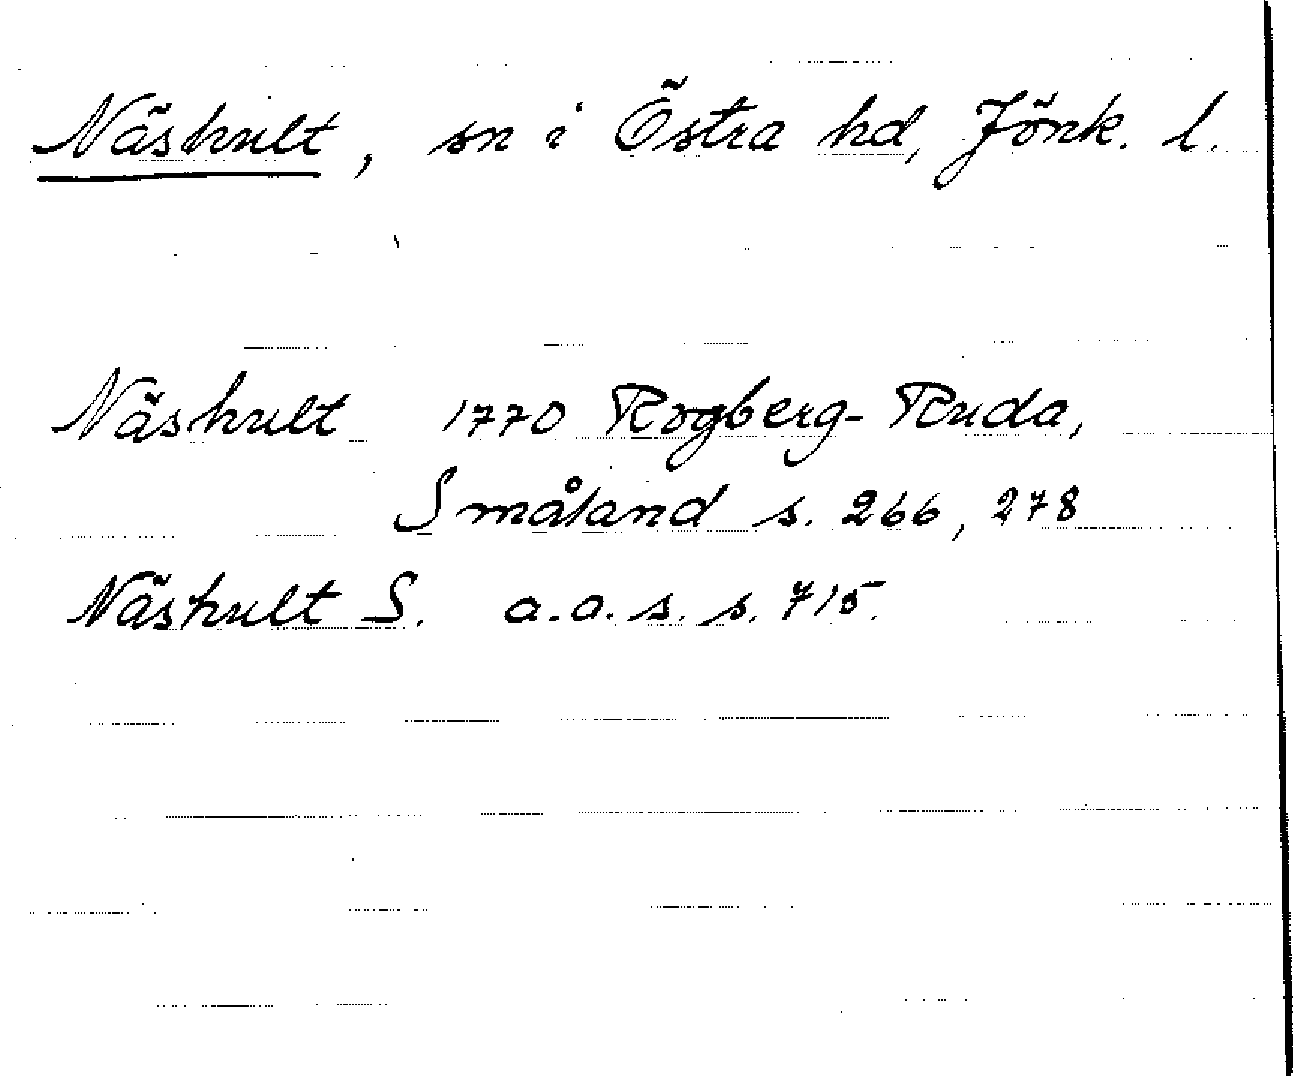 Näshult, sn i Östra hd, Jönk. l.
Näshult 1770 Rogberg-Ruda,
Småland s. 266, 278
Näshult S. a.a.s. s. 715.